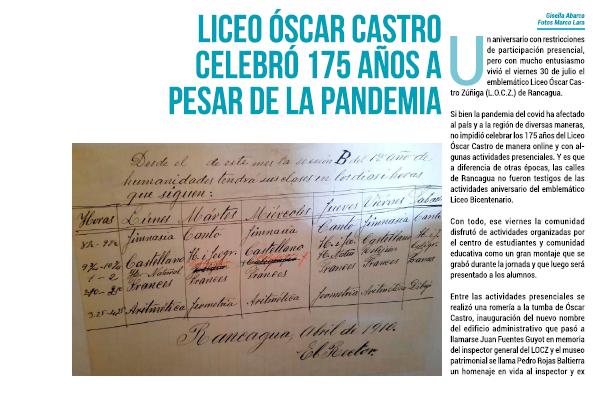 LICEO ÓSCAR CASTRO
CELEBRÓ 175 AÑOS A
PESAR DE LA PANDEMIA
Gisella Abarca
Fotos Marco Lara
Un aniversario con restricciones
de participación presencial,
pero con mucho entusiasmo
vivió el viernes 30 de julio el
emblemático Liceo Óscar Cas-
tro Zúñiga (L.O.C.Z.) de Rancagua.
Si bien la pandemia del covid ha afectado
al país y a la región de diversas maneras,
no impidió celebrar los 175 años del Liceo
Óscar Castro de manera online y con al-
gunas actividades presenciales. Y es que
a diferencia de otras épocas, las calles
de Rancagua no fueron testigos de las
actividades aniversario del emblemático
Liceo Bicentenario.
Con todo, ese viernes la comunidad
disfrutó de actividades organizadas por
el centro de estudiantes y comunidad
educativa como un gran montaje que se
grabó durante la jornada y que luego será
presentado a los alumnos.
Entre las actividades presenciales se
realizó una romería a la tumba de Óscar
Castro, inauguración del nuevo nombre
del edificio administrativo que pasó a
llamarse Juan Fuentes Guyot en memoria
del inspector general del LOCZ y el museo
patrimonial se llama Pedro Rojas Baltierra
un homenaje en vida al inspector y ex
Desde el de este mes la sección B del 1er año de
humanidades tendrá sus clases en los dias i horas
que siguen:
Horas Lúnes Mártes Miércoles Juéves Viérnes
Jimnasia Canto Jimnasia Canto Jimnasia Canto
Castellano Castellano
1 - 2 Frances Frances Frances Frances
Aritmética Jeometría Aritmética Jeometría Aritmética Dibujo
Rancagua, Abril de 1910.
El Rector.